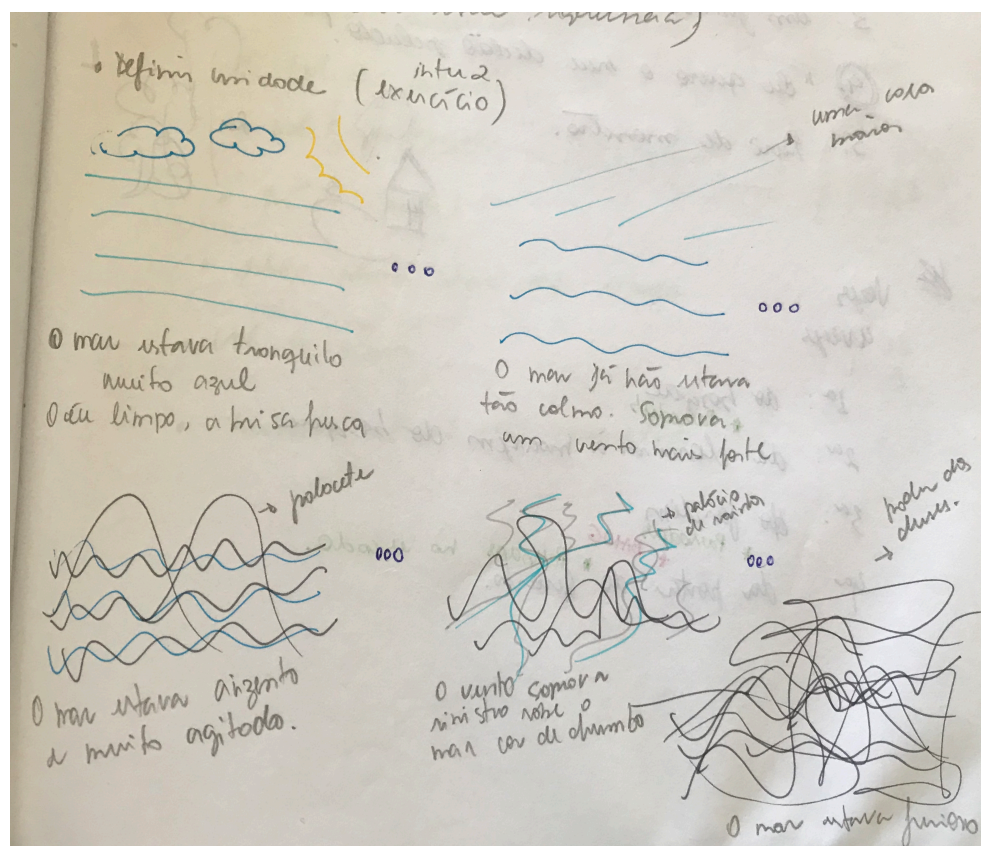 • Definir unidade (intu2
exercício)
uma casa
maior
O mar estava tranquilo
muito azul
O céu limpo, a brisa fresca
O mar já não estava
tão calmo. Soprava
um vento mais forte
palacete
O mar estava cinzento
e muito agitado.
palácio
O vento soprava
sinistro sobre o
mar cor de chumbo
poder dos
deuses.
O mar estava furioso